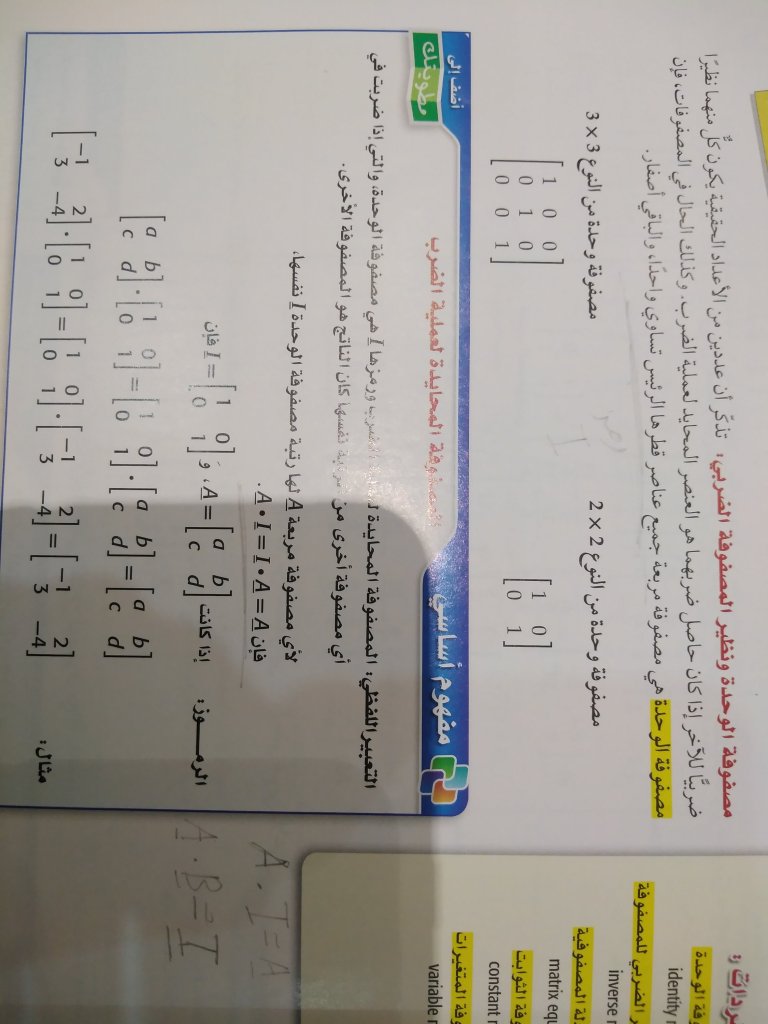 مصفوفة الوحدة ونظير المصفوفة الضربي: تذكّر أن عددين من الأعداد الحقيقية يكون كلٌّ منهما نظيرًا
ضربيًّا للآخر إذا كان حاصل ضربهما هو العنصر المحايد لعملية الضرب. وكذلك الحال في المصفوفات، فإن
مصفوفة الوحدة هي مصفوفة مربعة جميع عناصر قطرها الرئيس تساوي واحدًا، والباقي أصفار.
مصفوفة وحدة من النوع 2 × 2
مصفوفة وحدة من النوع 3 × 3
[1 0
0 1]
[1 0 0
0 1 0
0 0 1]
مفهوم أساسي
المصفوفة المحايدة لعملية الضرب
أضف إلى
مطويتك
التعبير اللفظي: المصفوفة المحايدة لعملية الضرب ورمزها I هي مصفوفة الوحدة، والتي إذا ضربت في
أي مصفوفة أخرى من الرتبة نفسها كان الناتج هو المصفوفة الأخرى.
لأي مصفوفة مربعة A لها رتبة مصفوفة الوحدة I نفسها،
فإن A • I = I • A = A .
الرمـــوز: إذا كانت A = [a b
c d] ، و I = [1 0
0 1] فإن
[a b
c d] • [1 0
0 1] = [1 0
0 1] • [a b
c d] = [a b
c d]
مثال:
[-1 2
3 -4] • [1 0
0 1] = [1 0
0 1] • [-1 2
3 -4] = [-1 2
3 -4]
المفردات:
مصفوفة الوحدة
identity
النظير الضربي للمصفوفة
inverse
المصفوفية
matrix equ
الثوابت
constant
المتغيرات
variable
A . I = A
A . B = I
I